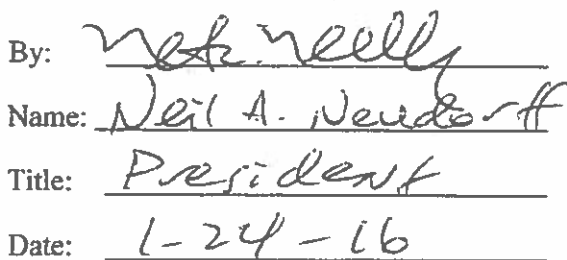 By:
Name: Neil A. Neudorff
Title: President
Date: 1-24-16